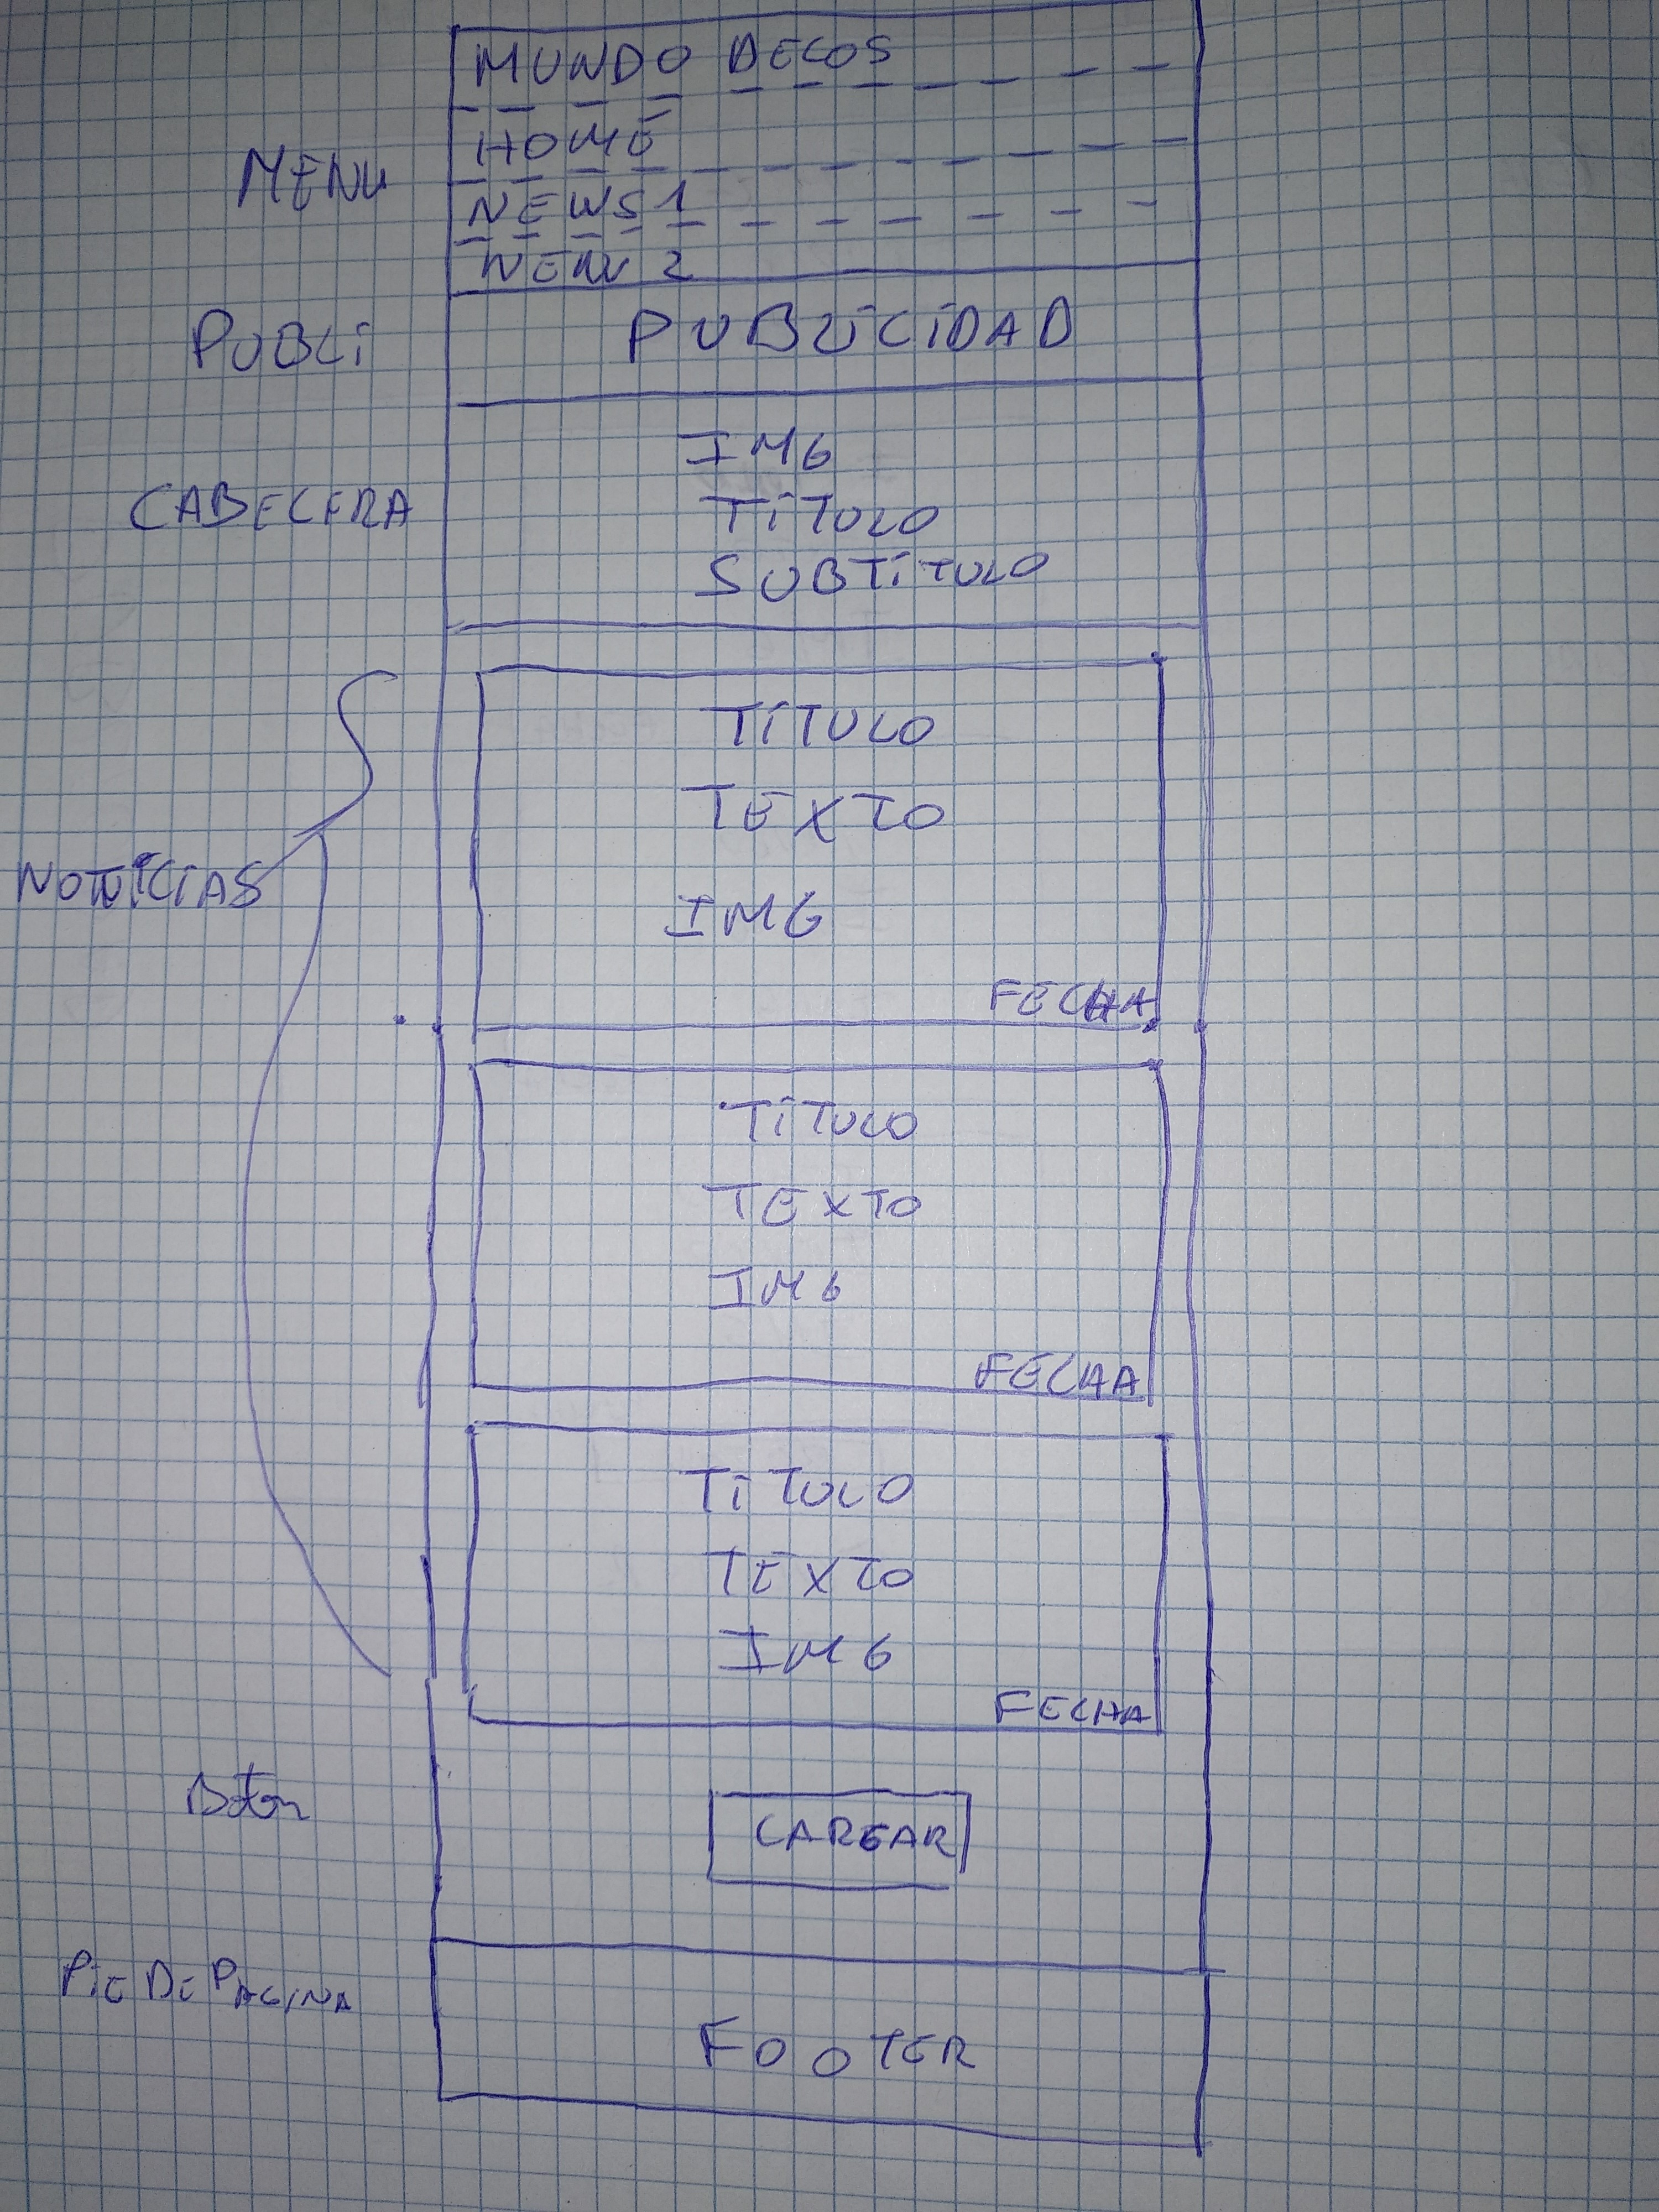 MUNDO DECOS
HOME
MENU
NEWS 1
NEW 2
PUBLI
PUBLICIDAD
IMG
CABECERA
TÍTULO
SUBTÍTULO
TÍTULO
TEXTO
NOTICIAS
IMG
FECHA
TÍTULO
TEXTO
IMG
FECHA
TÍTULO
TEXTO
IMG
FECHA
Boton
CARGAR
PIE DE PAGINA
FOOTER